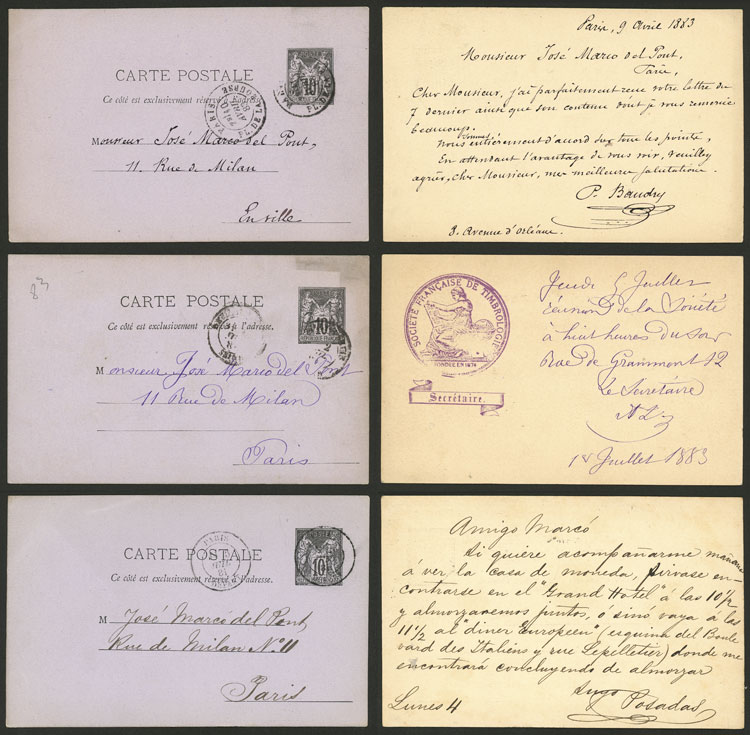 CARTE POSTALE
Ce côté est exclusivement réservé à l'adresse.
Monsieur José Marco del Pont,
11. Rue de Milan
En ville
Paris, 9 Avril 1883
Monsieur José Marco del Pont,
Paris,
Cher Monsieur, j'ai parfaitement reçu votre lettre du
7 dernier ainsi que son contenu dont je vous remercie
beaucoup.
Nous sommes entièrement d'accord sur tous les points,
En attendant l'avantage de vous voir, veuillez
agréer, Cher Monsieur, mes meilleures salutations.
P. Baudry
3. Avenue d'Orléans.
83
CARTE POSTALE
Ce côté est exclusivement réservé à l'adresse.
Monsieur José Marco del Pont
11 Rue de Milan
Paris
SOCIÉTÉ FRANÇAISE DE TIMBROLOGIE
FONDÉE EN 1874
Secrétaire.
Jeudi 5 Juillet
Réunion de la Société
à huit heures du soir
Rue de Grammont 12
Le Secrétaire
1er Juillet 1883
CARTE POSTALE
Ce côté est exclusivement réservé à l'adresse.
M José Marcó del Pont,
Rue de Milan Nº 11
Paris
Amigo Marcó
Si quiére acompañarme mañana
á ver la casa de moneda, sirvase en-
contrarse en el "Grand Hotel á las 10 1/2
y almorzaremos juntos, ó sinó vaya á las
11 1/2 al "diner Européen" (esquina del Boule
vard des Italiens y rue Lepelletier) donde me
encontrará concluyendo de almorzar
Posadas
Lunes 4